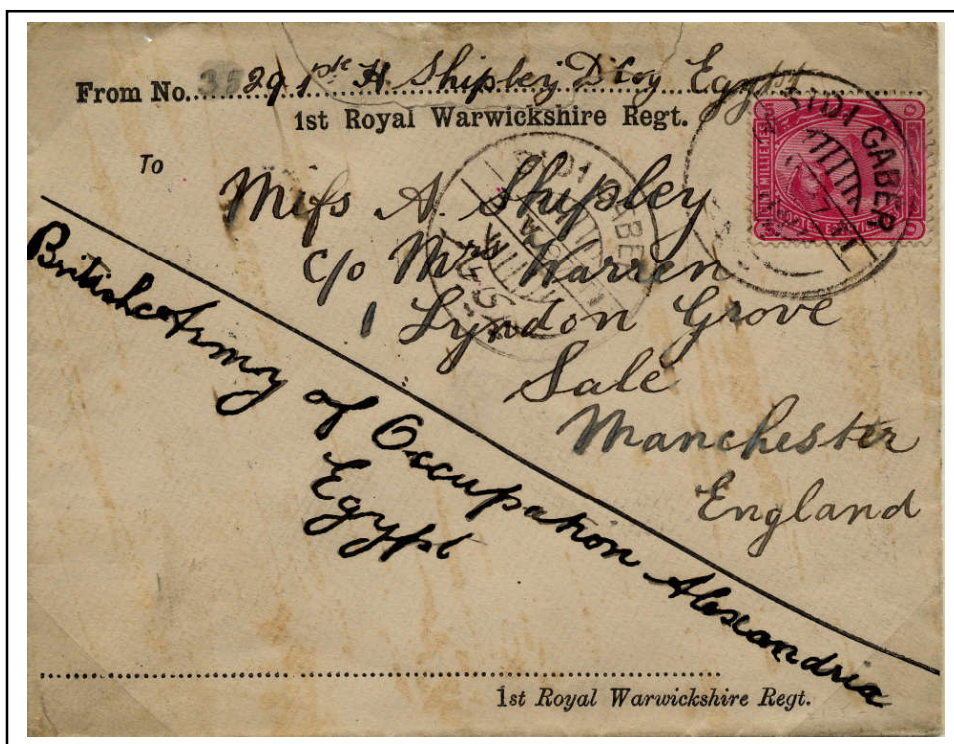 From No. 3529 Pte H. Shipley D Coy Egypt
1st Royal Warwickshire Regt.
To
SIDI GABER
SIDI GABE
Miss A. Shipley
c/o Mrs Warren
1 Lyndon Grove
Sale
Manchester
England
British Army of Occupation Alexandria
Egypt
1st Royal Warwickshire Regt.